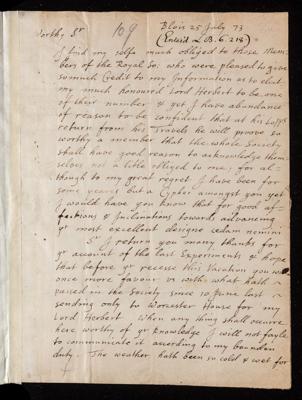 Blois 25 July 73
109
(Enter'd L.B. 6. 218)
Worthy Sr
I find my selfe much obliged to those Mem-
bers of the Royal So: who were pleased to give
so much Credit to my Information as to elect
my much honoured Lord Herbert to be one
of their number & yet I have abundance
of reason to be confident that at his Lopps
return from his Travels he will prove so
worthy a member that the whole Society
shall have good reason to acknowledge them
selves not a litle obliged to me; for al-
though to my great regret I have been for
some yeares but a Cypher amongst you yet
I would have you know that for good af-
fections & Inclinations towards advancing
yr most excellent designe cedam nemini
Sr I return you many thanks for
yr account of the last Experiments & hope
that before yr recesse this Vacation you will
once more favour us with what hath
passed in the Society since 10 June last
sending only to Worcester House for my
Lord Herbert When any thing shall occurre
here worthy of yr knowledge I will not fayle
to communicate it according to my bounden
duty. The weather hath been so cold & wet for